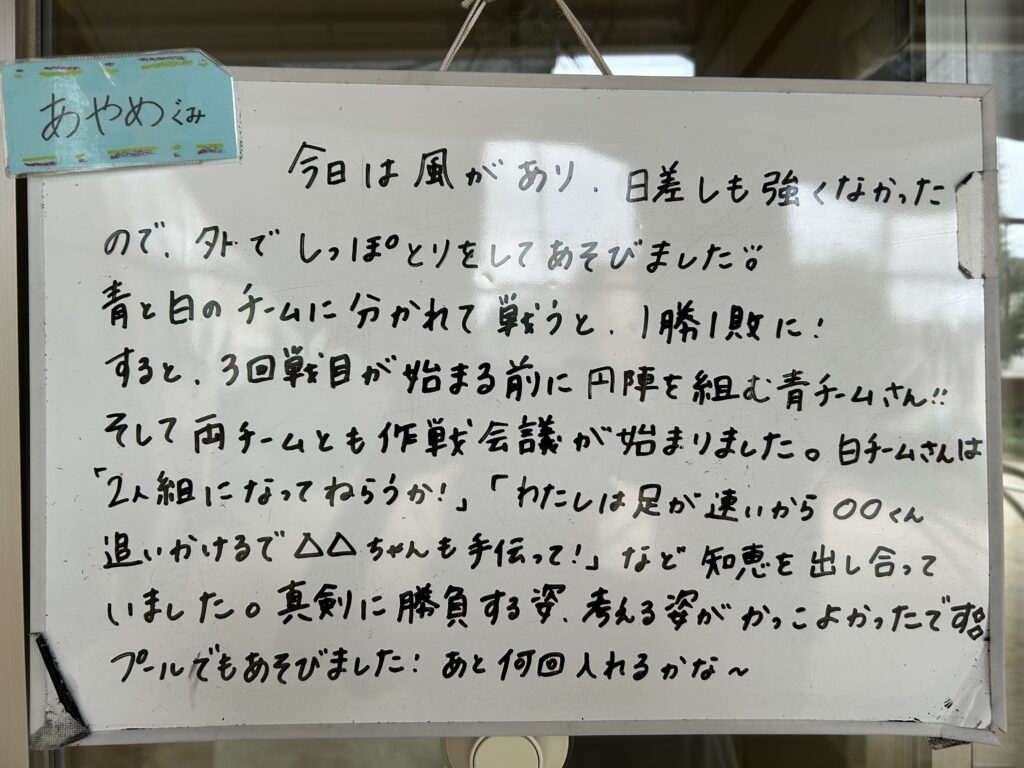 あやめぐみ
今日は風があり、日差しも強くなかった
ので、外でしっぽとりをしてあそびました。
青と白のチームに分かれて戦うと、1勝1敗に!
すると、3回戦目が始まる前に円陣を組む青チームさん!!
そして両チームとも作戦会議が始まりました。白チームさんは
「2人組になってねらうか!」「わたしは足が速いから〇〇くん
追いかけるで△△ちゃんも手伝って!」など知恵を出し合って
いました。真剣に勝負する姿、考える姿がかっこよかったです。
プールでもあそびました! あと何回入れるかな~